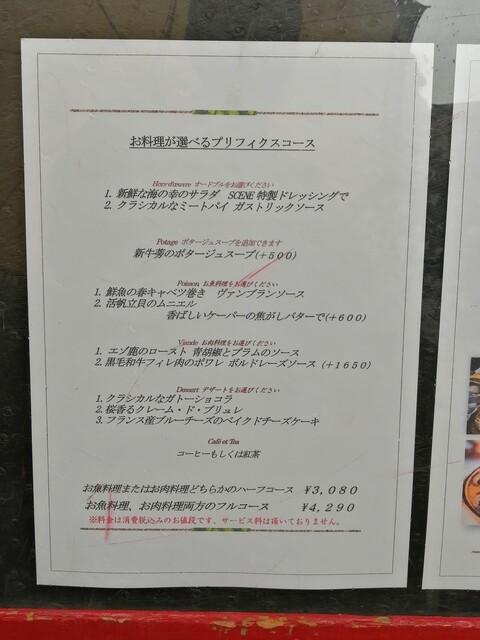 お料理が選べるプリフィクスコース
Hors-d'œuvre オードブルをお選びください
1. 新鮮な海の幸のサラダ SCENE 特製ドレッシングで
2. クラシカルなミートパイ ガストリックソース
Potage ポタージュスープを追加できます
新牛蒡のポタージュスープ(+500)
Poisson お魚料理をお選びください
1. 鮮魚の春キャベツ巻き ヴァンブランソース
2. 活帆立貝のムニエル
香ばしいケーパーの焦がしバターで(+600)
Viande お肉料理をお選びください
1. エゾ鹿のロースト 青胡椒とプラムのソース
2. 黒毛和牛フィレ肉のポワレ ボルドレーズソース (+1650)
Dessert デザートをお選びください
1. クラシカルなガトーショコラ
2. 桜香るクレーム・ド・ブリュレ
3. フランス産ブルーチーズのベイクドチーズケーキ
Café et Tea
コーヒーもしくは紅茶
お魚料理またはお肉料理どちらかのハーフコース ¥3,080
お魚料理、お肉料理両方のフルコース ¥4,290
※料金は消費税込みのお値段です、サービス料は頂いておりません。